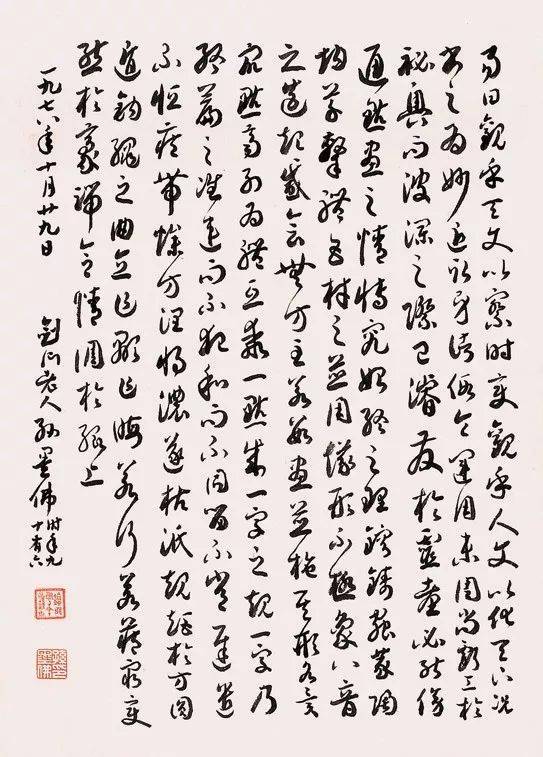 易曰觀乎天文以察时变觀乎人文以化天下况
书之為妙近取身诸假令運用未周尚虧工於
秘奧而波瀾之際已濬发於靈臺必能傍
通點畫之情博究始終之理鎔鑄蟲篆陶
均草隸體五材之並用儀形不極象八音
之迭起感會無方至若數畫並施其形各異
眾點齊列為體互乖一點成一字之規一字乃
終篇之準違而不犯和而不同留不常遲遣
不恒疾帶燥方潤將濃遂枯泯規矩於方圓
遁鉤繩之曲直乍顯乍晦若行若藏窮變
態於豪端合情調於紙上
一九七八年十月廿九日
劍门老人孫墨佛时年九
十有六